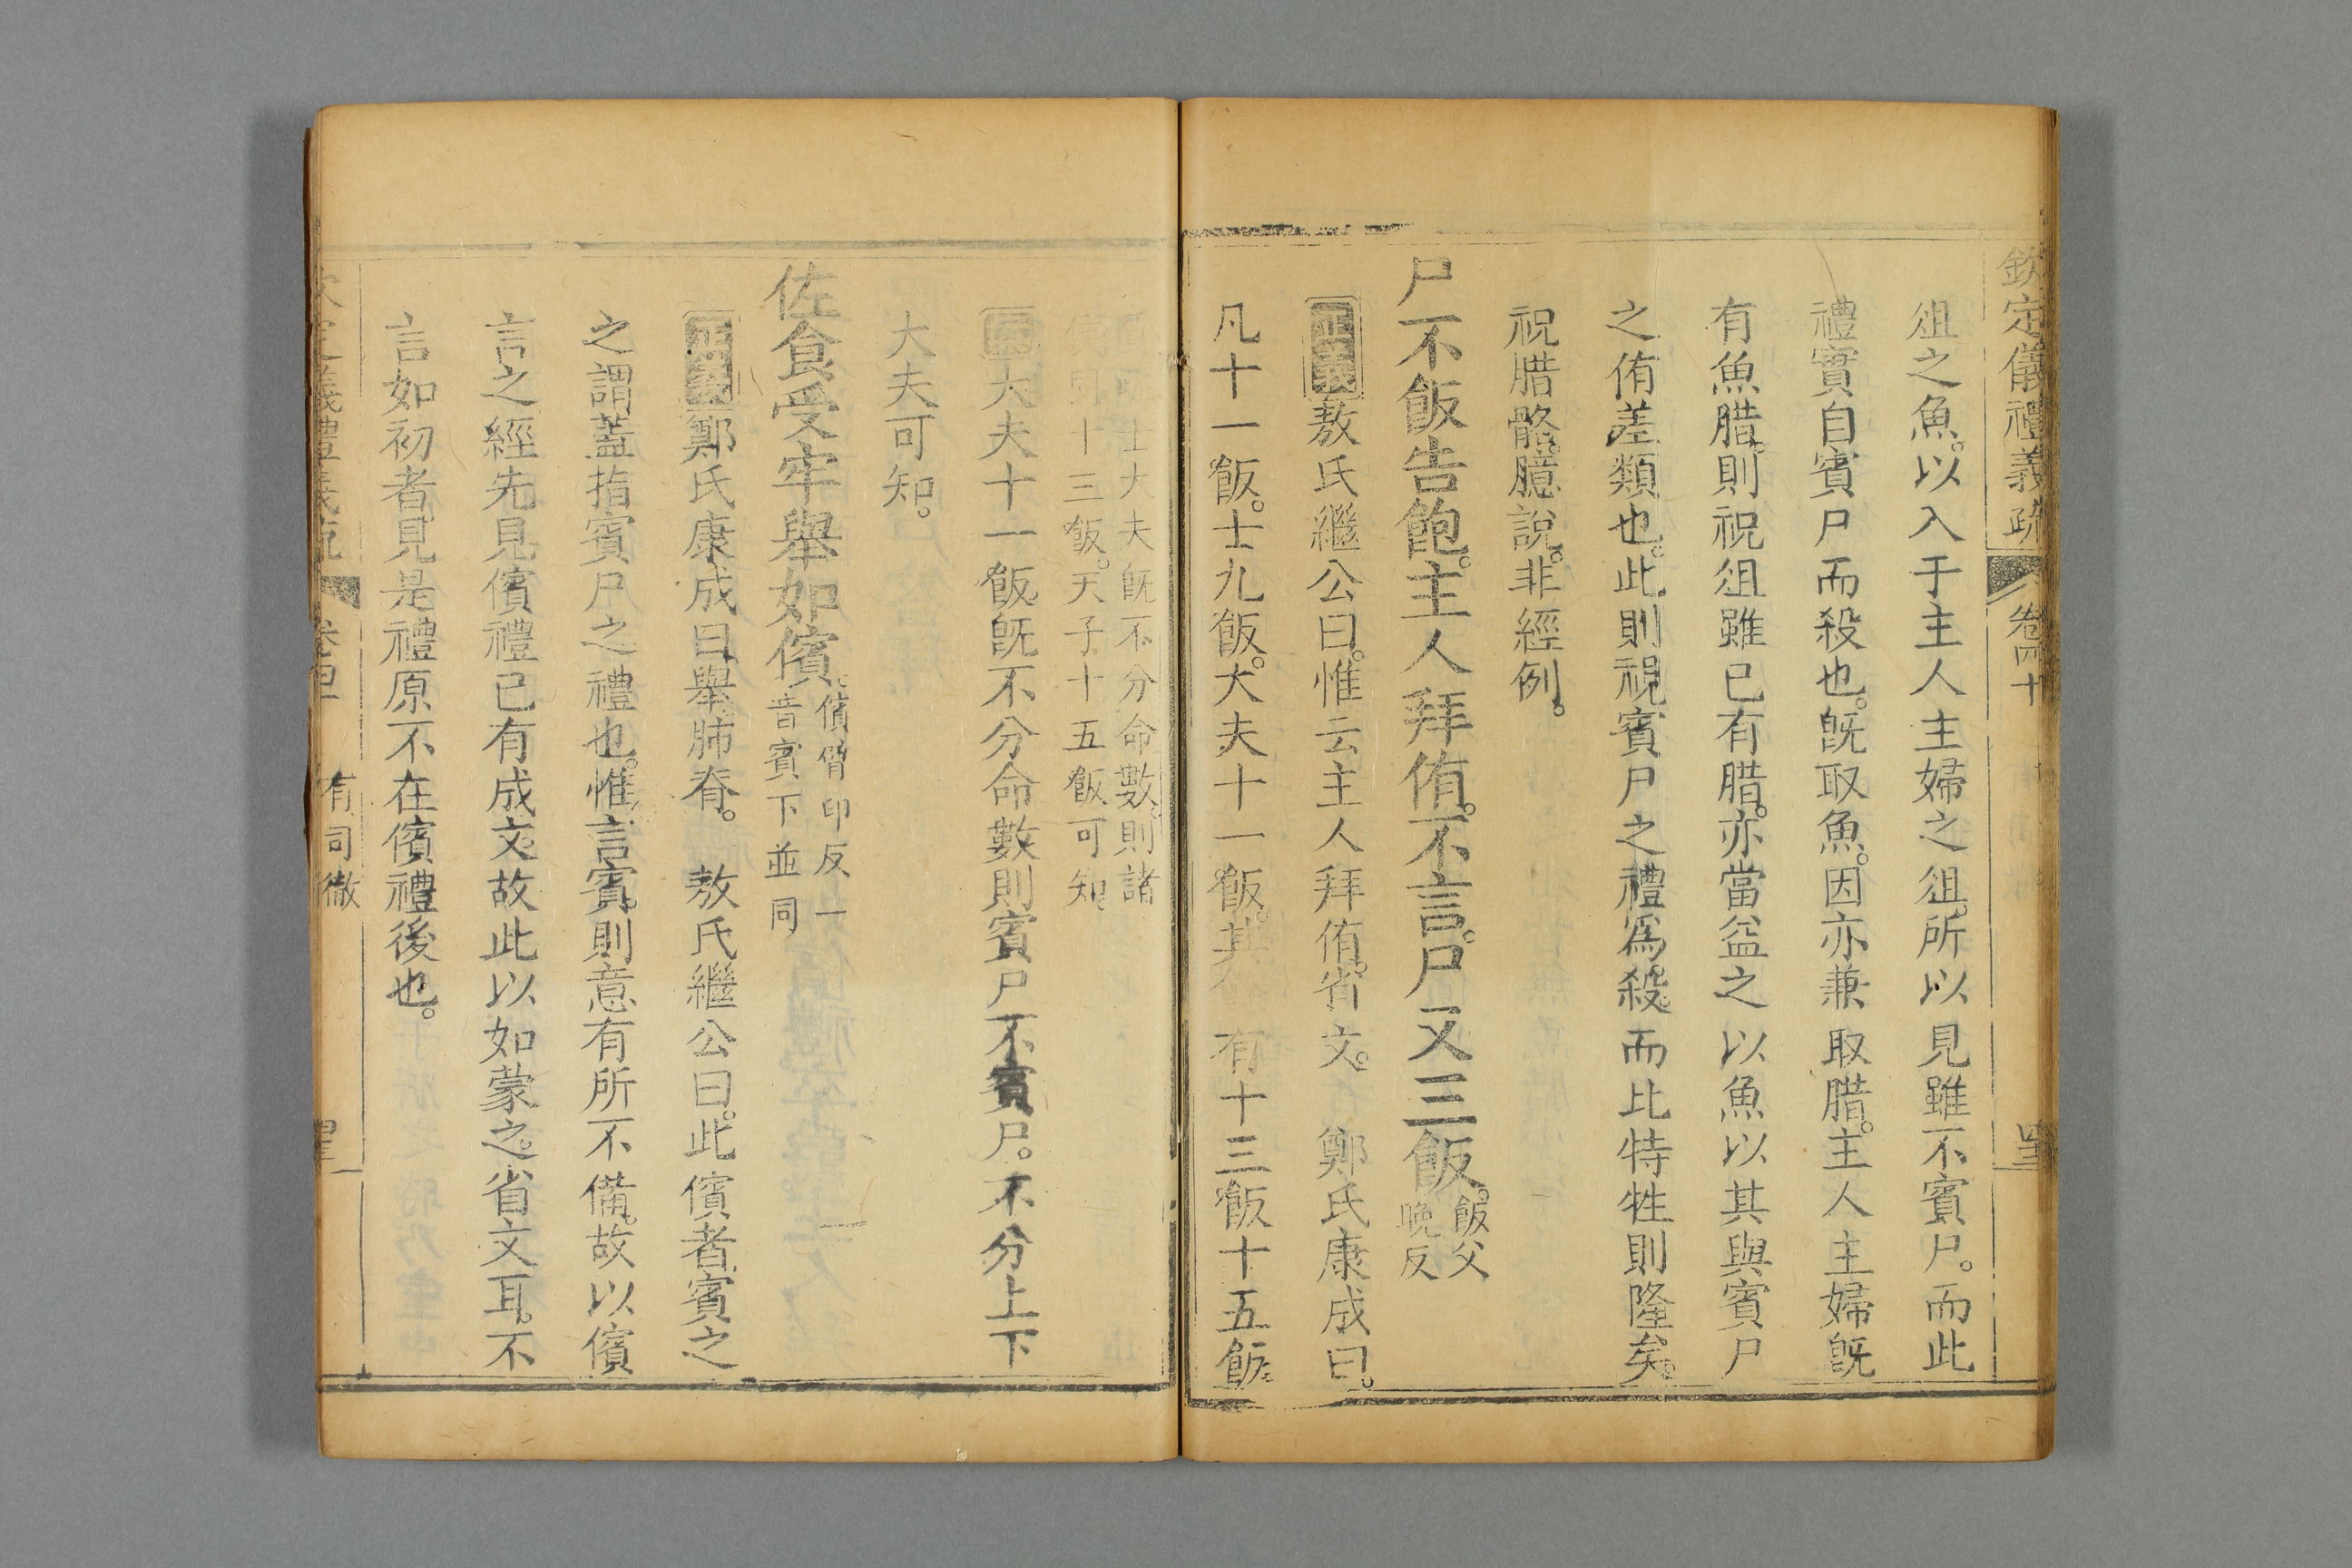 欽定儀禮義疏 卷四十
俎之魚。以入于主人主婦之俎。所以見雖不賓尸。而此
禮實自賓尸而殺也。旣取魚。因亦兼取腊。主人主婦旣
有魚腊。則祝俎雖已有腊。亦當益之以魚以其與賓尸
之侑差類也。此則視賓尸之禮爲殺。而比特牲則隆矣。
祝腊骼。臆說。非經例。
尸不飯告飽。主人拜侑。不言。尸又三飯。飯父晚反
正義敖氏繼公曰。惟云主人拜侑。省文。 鄭氏康成曰。
凡十一飯。士九飯。大夫十一飯。其 有十三飯十五飯。
士大夫旣不分命數。則諸
十三飯。天子十五飯可知。
大夫十一飯。旣不分命數則賓尸不賓尸。不分上下
大夫可知。
佐食受牢舉如儐。儐背印反一音賓下並同
正義鄭氏康成曰舉肺脊。 敖氏繼公曰。此儐者賓之
之謂蓋指賓尸之禮也。惟言賓。則意有所不備。故以儐
言之經先見儐禮已有成文。故此以如蒙之。省文耳。不
言如初者見是禮原不在儐禮後也。
有司徹